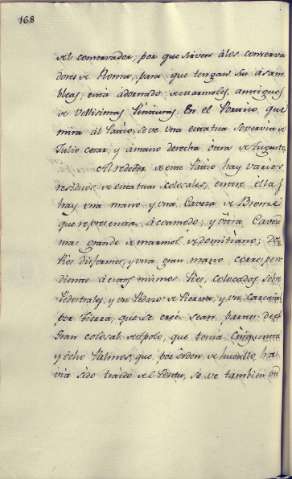 168
del conservador; por que sirven á los conserva
dores de Roma, para que tengan sus asam
bleas, está adornado de marmoles, antiguos
de vellisimas Pinturas. En el Portico, que
mira al Patio, se ve una estatua de
Julio Cesar, y á mano derecha otra de Augusto.
Al rededor de este Patio hay varios
residuos de estatuas colosales, entre ellas
hay una mano y una Caveza de Bronze
que representa, á Comodo; y otra Caveza
mas grande de marmol de Domitiano; Dos
Pies disformes, y una gran mano corres
diente á estos mismos Pies, colocados sobre
Pedestales; y un Pedazo de Pierna, y un
por tierra, que se cree sean, partes del
Gran colosal de Apolo, que tenia Cinquenta
y ocho Palmos, que por orden de Luculo, ha
via sido traido del Ponto, se ve tambien un